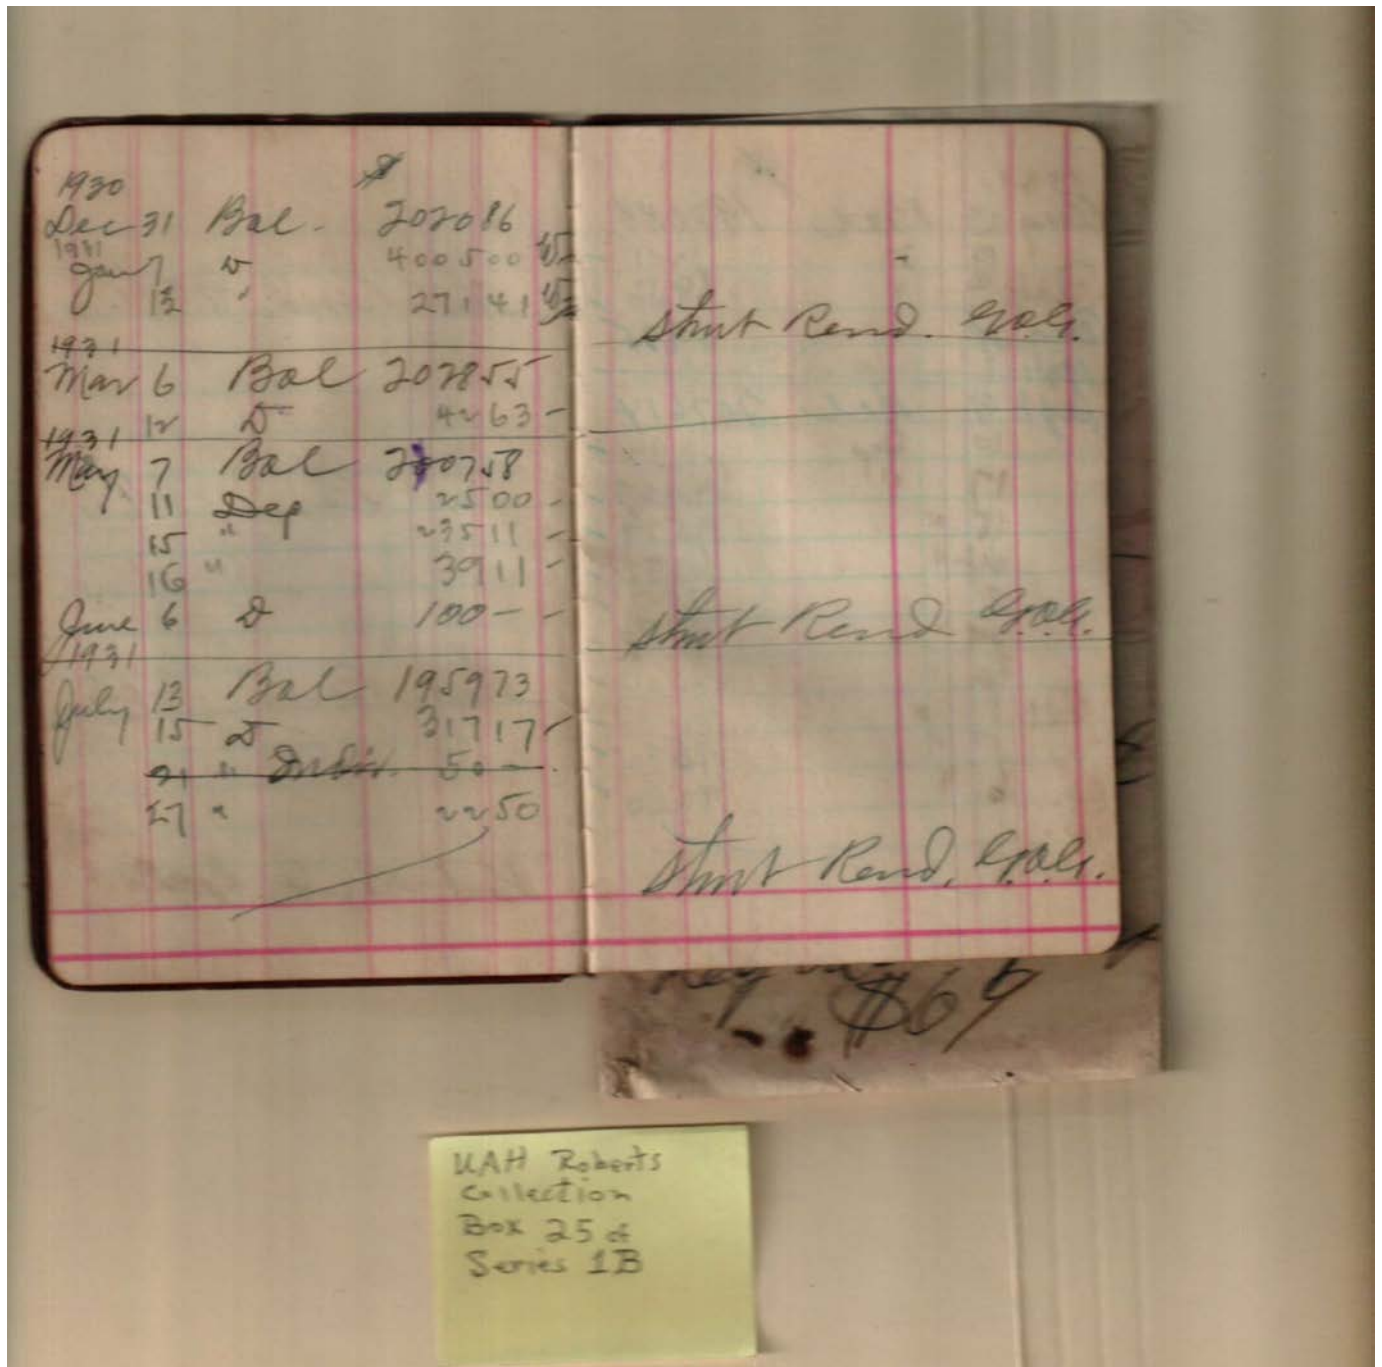 1930
$
Dec 31 Bal. 202086
1931
Jan 7 D 400500
12 " 27141
1931
Mar 6 Bal 202855
12 D 4263 -
1931
May 7 Bal 200758
11 Dep 2500 -
15 " 23511 -
16 " 3911 -
June 6 D 100 - -
1931
July 13 Bal 195973
15 D 31717 -
21 " 50 -
27 " 2250
Stmt Rend. G.O.G.
Stmt Rend G.O.G.
Stmt Rend. G.O.G.
$69
UAH Roberts
Collection
Box 25 of
Series 1B